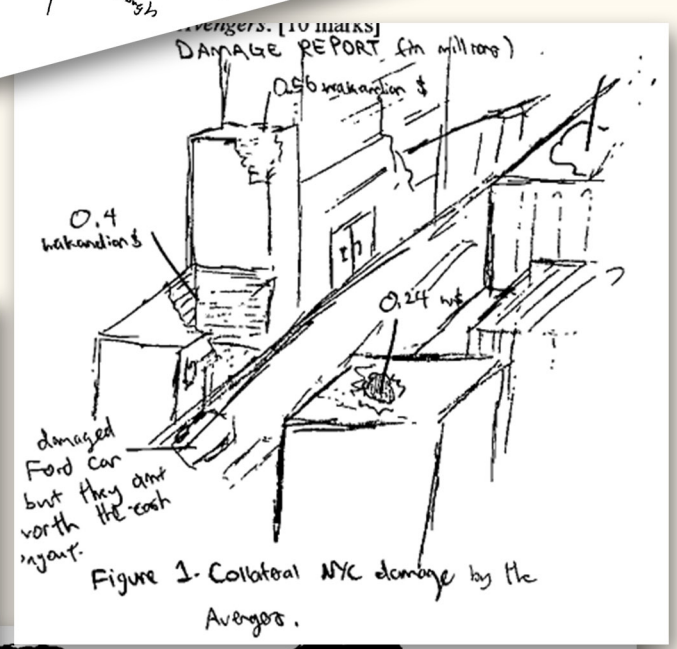 Avengers. [10 marks]
DAMAGE REPORT (in millions)
0.56 wakandian $
0.4
wakandian $
0.24 w$
damaged
Ford car
but they aint
worth the cash
Figure 1. Collateral NYC damage by the
Avengers.